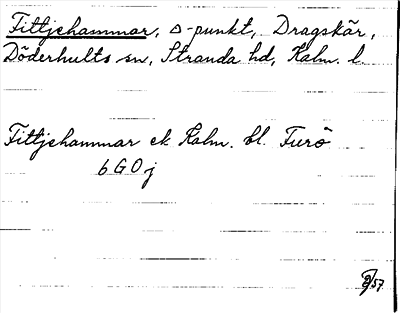 Fittjehammar, △-punkt, Dragskär,
Döderhults sn, Stranda hd, Kalm. l.
Fittjehammar ek Kalm. bl. Furö
6 G O j
57